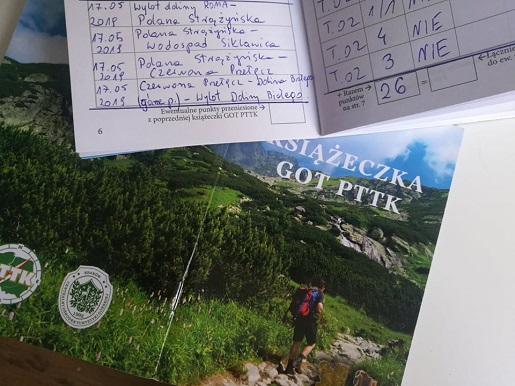 17.05 Wylot doliny ROMA-
2019 Polana Strążyńska
17.05 Polana Strążyńska -
2019 Wodospad Siklawica
17.05 Polana Strążyńska -
2019 Czerwona Przełęcz
17.05 Czerwona Przełęcz - Dolina Białego
2019 - Wylot Doliny Białego
Ewentualne punkty przeniesione →
z poprzedniej książeczki GOT PTTK
6
T.02 1/1 NIE
T.02 4 NIE
T.02 3 NIE
T.02
+ Razem →
punktów
na str. 7
26
=
← Łącznie
do ew.
KSIĄŻECZKA
GOT PTTK
PTTK